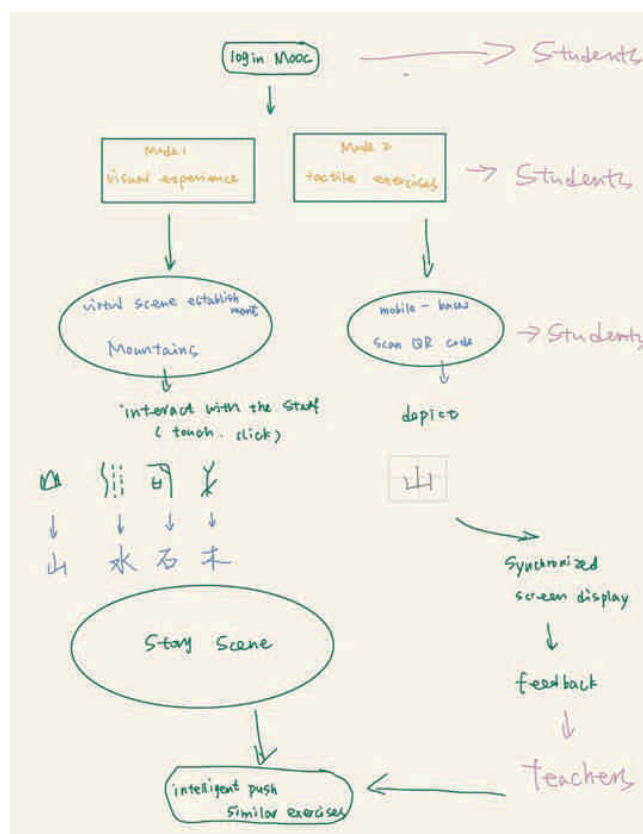 login Mooc
Students
Mode 1
visual experience
Mode 2
tactile exercises
Students
virtual scene establish
ment
Mountains
mobile - based
scan QR code
Students
interact with the staff
( touch . click)
depict
山
山 水 石 木
Synchronized
screen display
Story Scene
feedback
Teachers
intelligent push
similar exercises